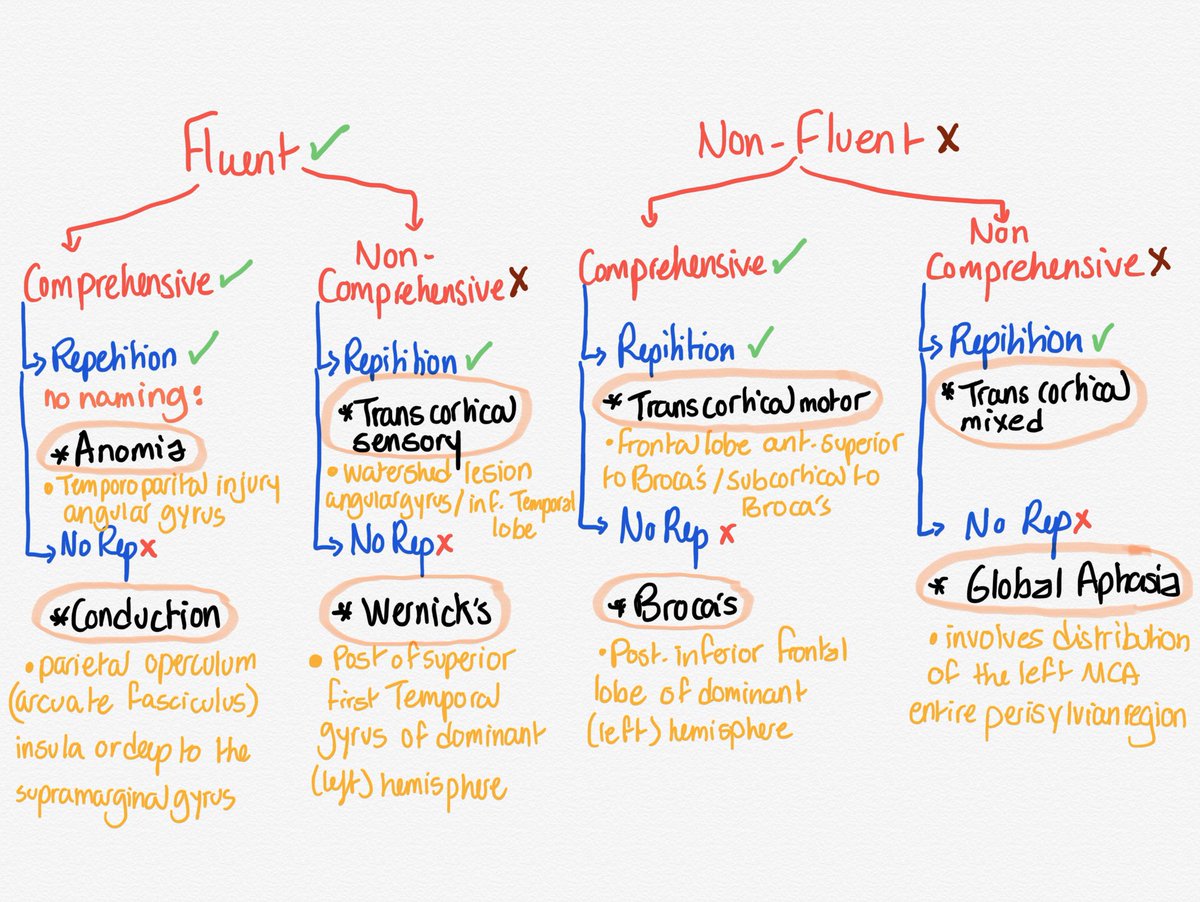 Fluent ✓
Comprehensive ✓
Repetition ✓
no naming:
*Anomia
• Temporoparital injury
angular gyrus
No Rep x
*Conduction
• parietal operculum
(arcuate fasciculus)
insula or deep to the
supramarginal gyrus
Non-
Comprehensive X
Repitition ✓
*Trans cortical
sensory
• Watershed lesion
angular gyrus / inf. Temporal
lobe
No Rep x
* Wernick's
• Post of superior
first Temporal
gyrus of dominant
(left) hemisphere
Non-Fluent X
Comprehensive ✓
Repitition ✓
* Trans cortical motor
• frontal lobe ant. superior
to Broca's / subcortical to
Broca's
No Rep x
*Broca's
• Post. inferior frontal
lobe of dominant
(left) hemisphere
Non
Comprehensive X
Repitition ✓
*Trans cortical
mixed
No Rep x
* Global Aphasia
• involves distribution
of the left MCA
entire perisylvian region